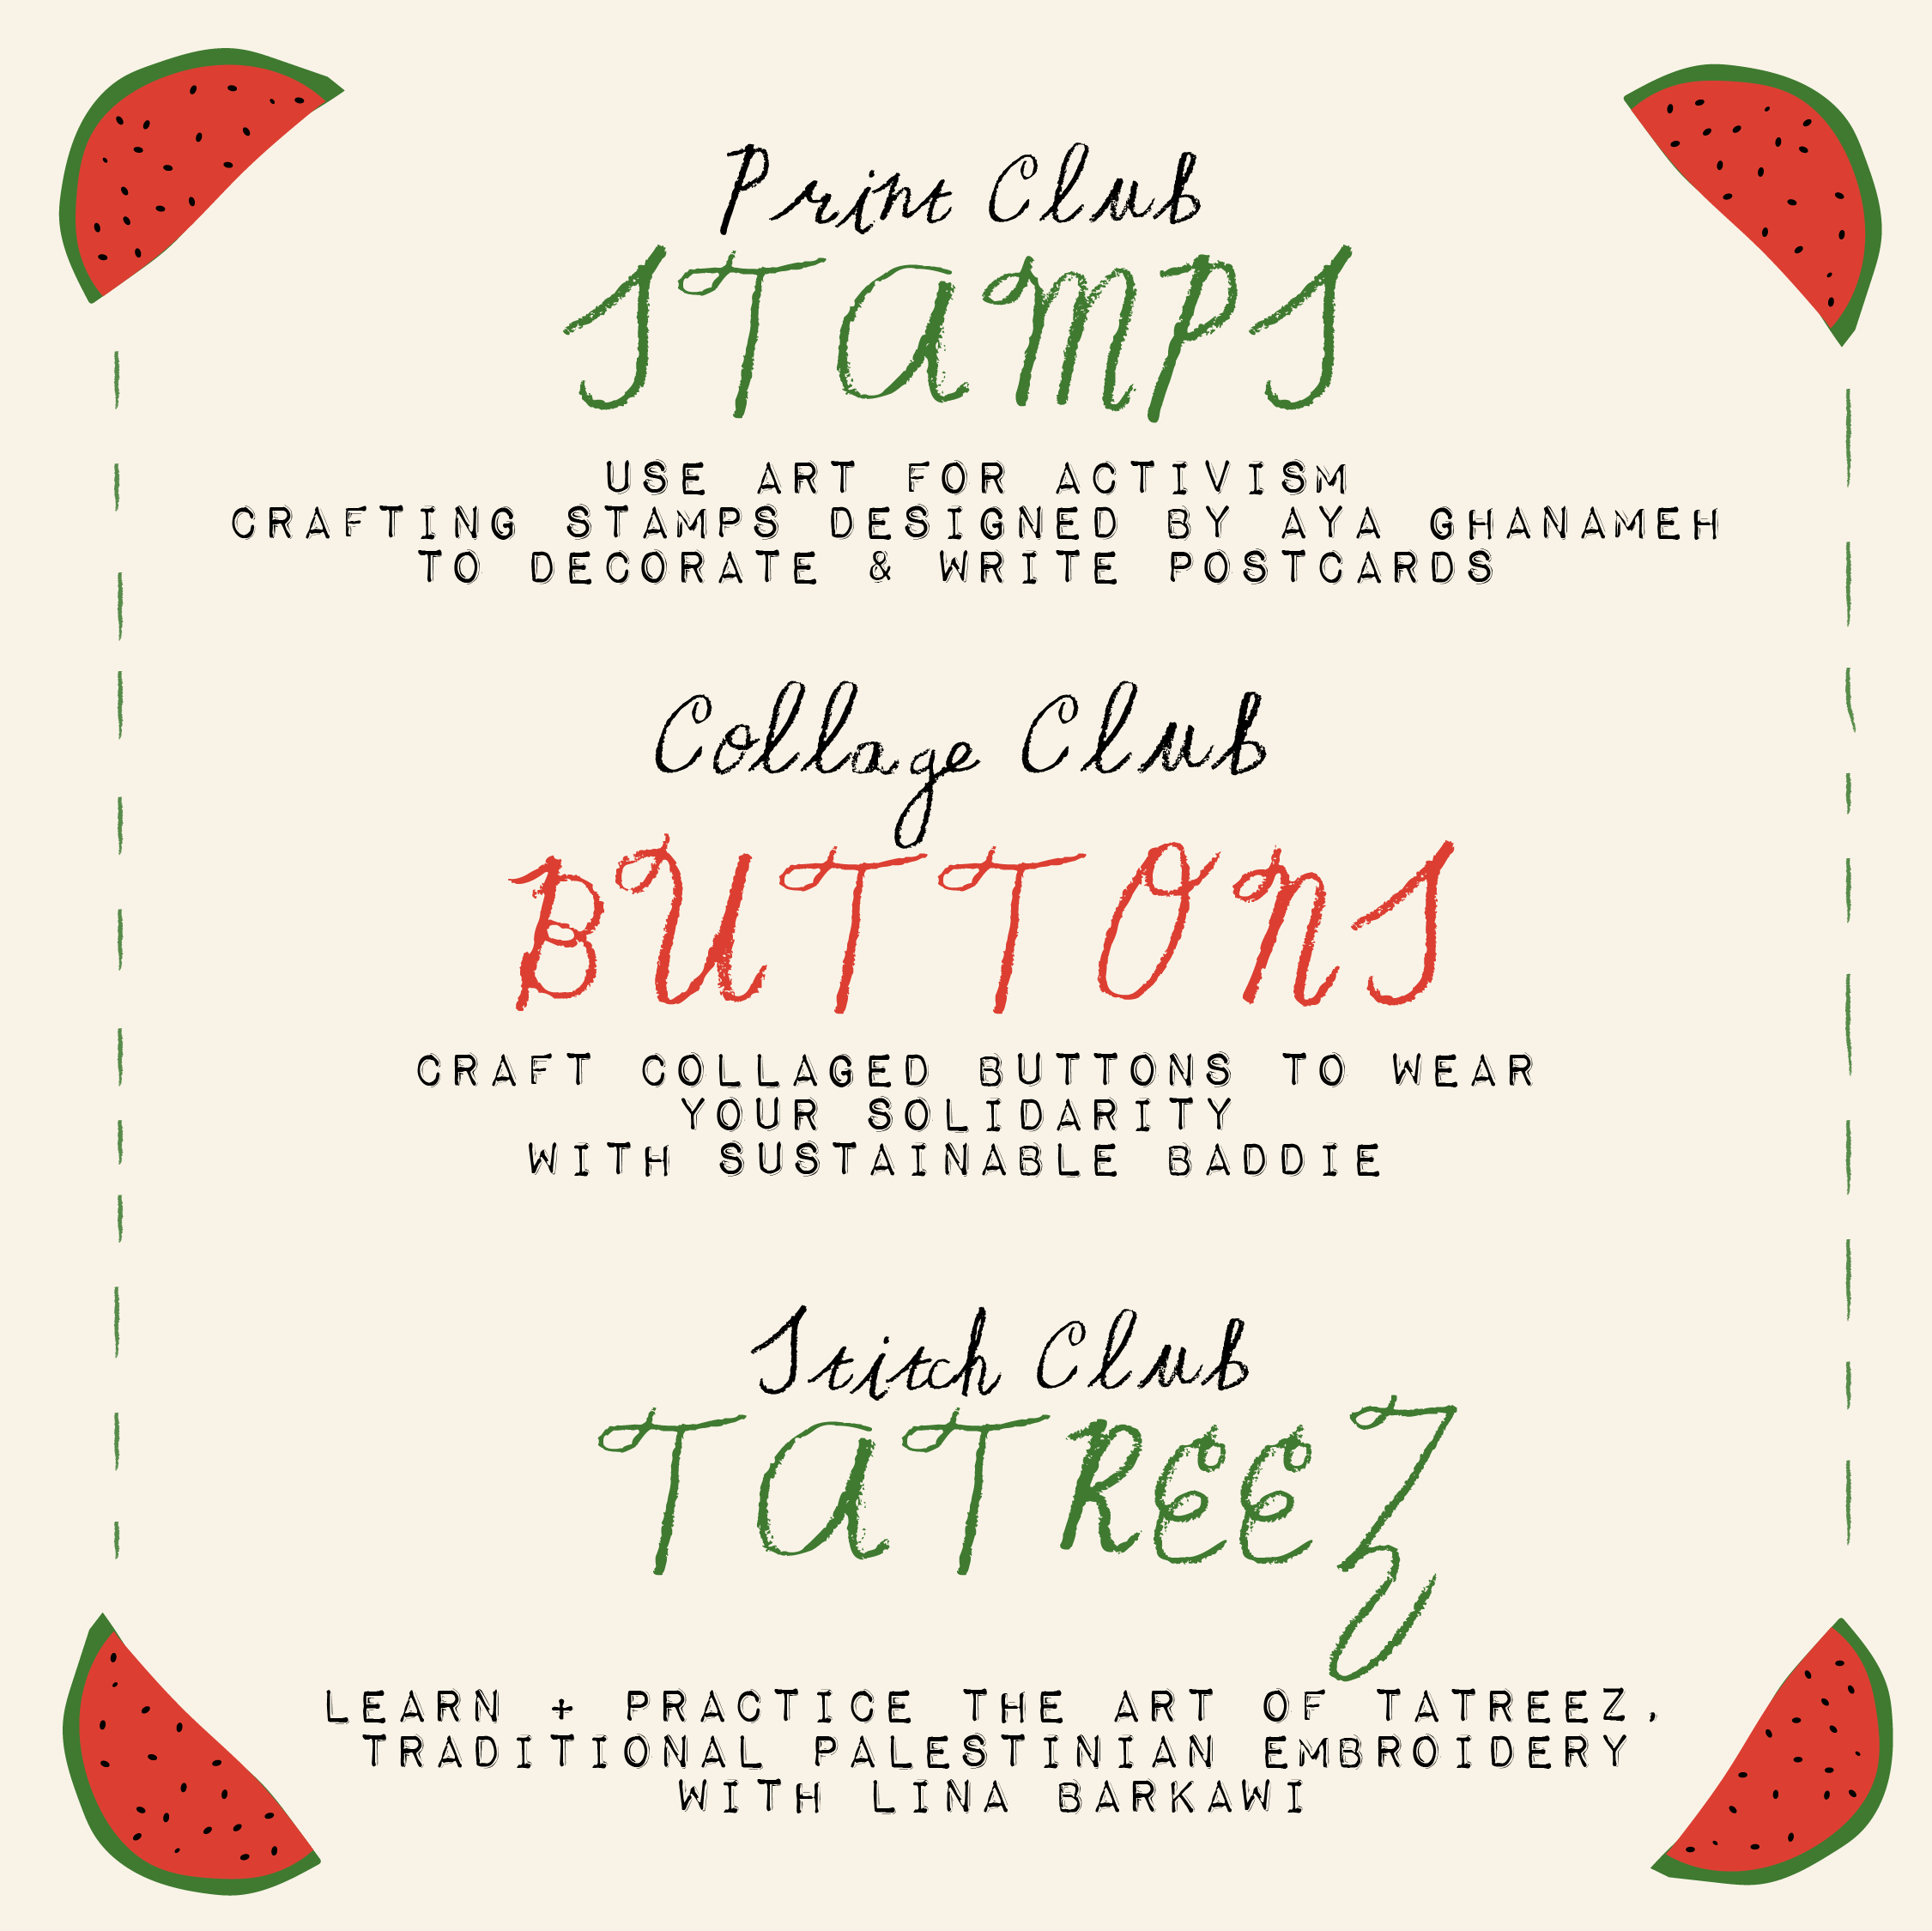 Print Club
STAMPS
USE ART FOR ACTIVISM
CRAFTING STAMPS DESIGNED BY AYA GHANAMEH
TO DECORATE & WRITE POSTCARDS
Collage Club
BUTTONS
CRAFT COLLAGED BUTTONS TO WEAR
YOUR SOLIDARITY
WITH SUSTAINABLE BADDIE
Stitch Club
TATREEZ
LEARN + PRACTICE THE ART OF TATREEZ,
TRADITIONAL PALESTINIAN EMBROIDERY
WITH LINA BARKAWI